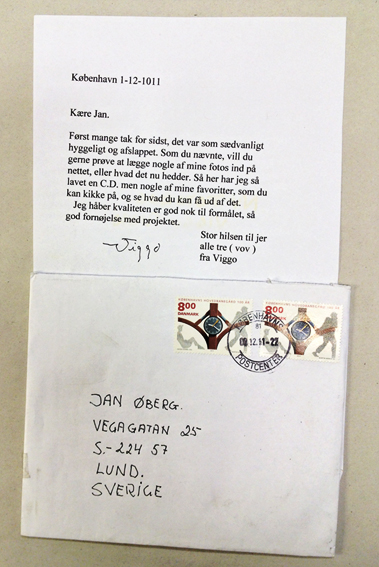 København 1-12-1011
Kære Jan.
Først mange tak for sidst, det var som sædvanligt
hyggeligt og afslappet. Som du nævnte, vill du
gerne prøve at lægge nogle af mine fotos ind på
nettet, eller hvad det nu hedder. Så her har jeg så
lavet en C.D. men nogle af mine favoritter, som du
kan kikke på, og se hvad du kan få ud af det.
Jeg håber kvaliteten er god nok til formålet, så
god fornøjelse med projektet.
Stor hilsen til jer
alle tre ( vov )
fra Viggo
Viggo
8.00
DANMARK
8.00
DANMARK
KØBENHAVNS
81
POSTCENTER
JAN ØBERG.
VEGAGATAN 25
S.-224 57
LUND.
SVERIGE